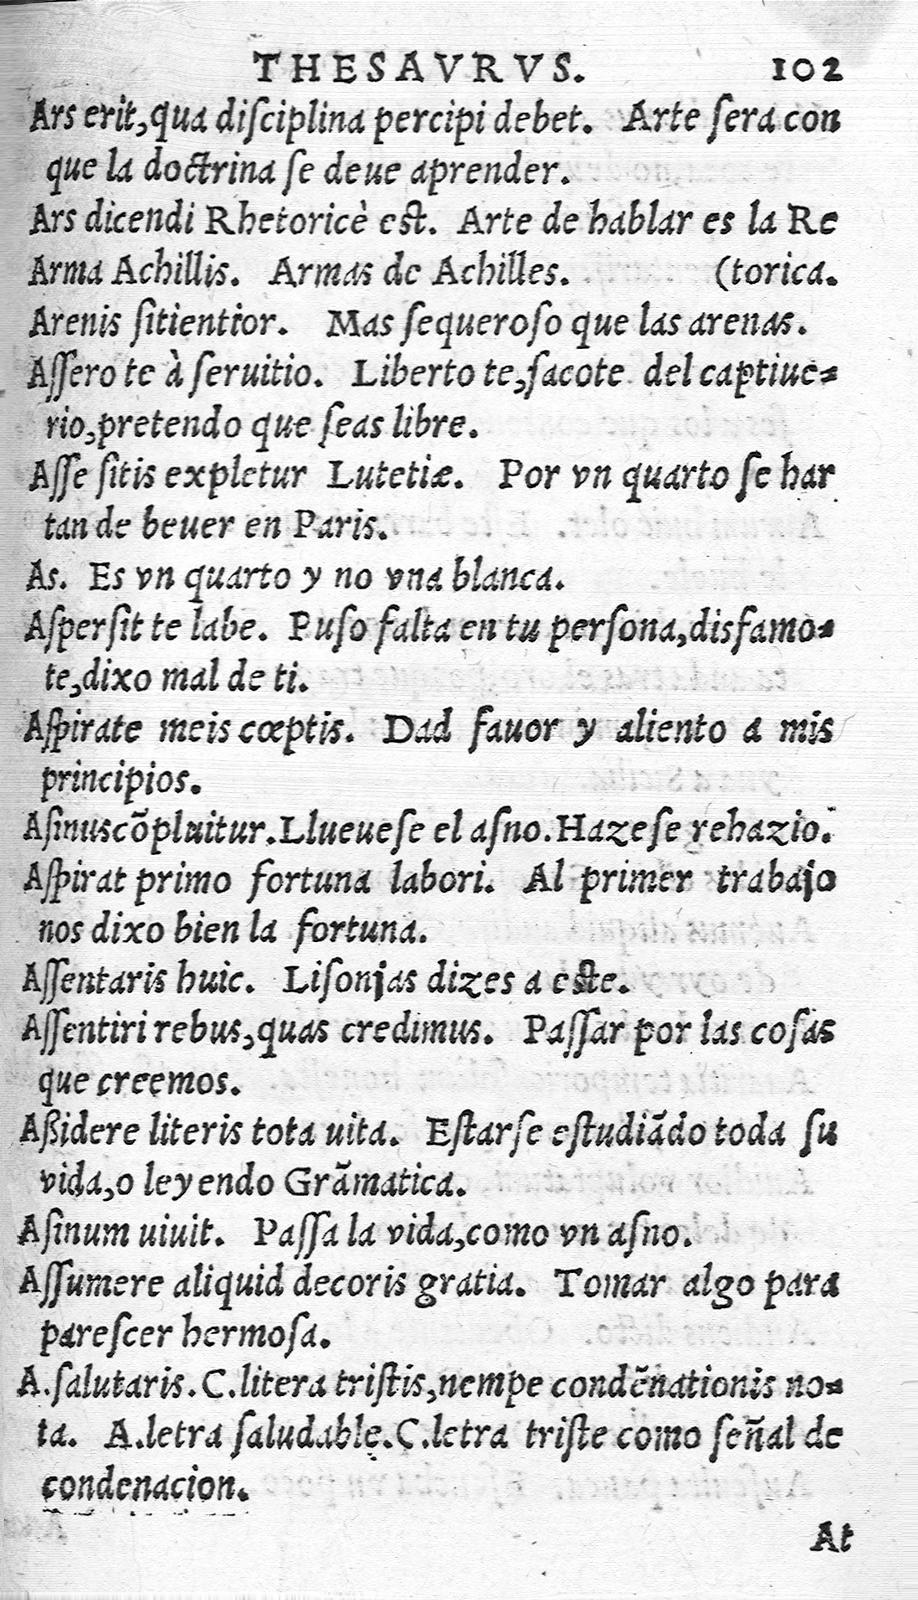 THESAVRVS. 102
Ars erit,qua diſciplina percipi debet. Arte ſera con
que la doctrina ſe deue aprender.
Ars dicendi Rhetoricè eſt. Arte de hablar es la Re
Arma Achillis. Armas de Achilles. (torica.
Arenis ſitientior. Mas ſequeroſo que las arenas.
Aſſero te à ſeruitio. Liberto te,ſacote del captiue-
rio,pretendo que ſeas libre.
Aſſe ſitis expletur Lutetiæ. Por vn quarto ſe har
tan de beuer en Paris.
As. Es vn quarto y no vna blanca.
Aſperſit te labe. Puſo falta en tu perſona,disfamo-
te,dixo mal de ti.
Aſpirate meis cœptis. Dad fauor y aliento a mis
principios.
Aſinus cõpluitur. Llueueſe el aſno. Hazeſe rehazio.
Aſpirat primo fortuna labori. Al primer trabajo
nos dixo bien la fortuna.
Aſſentaris huic. Liſonjas dizes a eſte.
Aſſentiri rebus,quas credimus. Paſſar por las coſas
que creemos.
Aßidere literis tota uita. Eſtarſe eſtudiãdo toda ſu
vida,o leyendo Grãmatica.
Aſinum uiuit. Paſſa la vida,como vn aſno.
Aſſumere aliquid decoris gratia. Tomar algo para
pareſcer hermoſa.
A.ſalutaris. C.litera triſtis,nempe condẽnationis no-
ta. A.letra ſaludable. C.letra triſte como ſeñal de
condenacion.
At